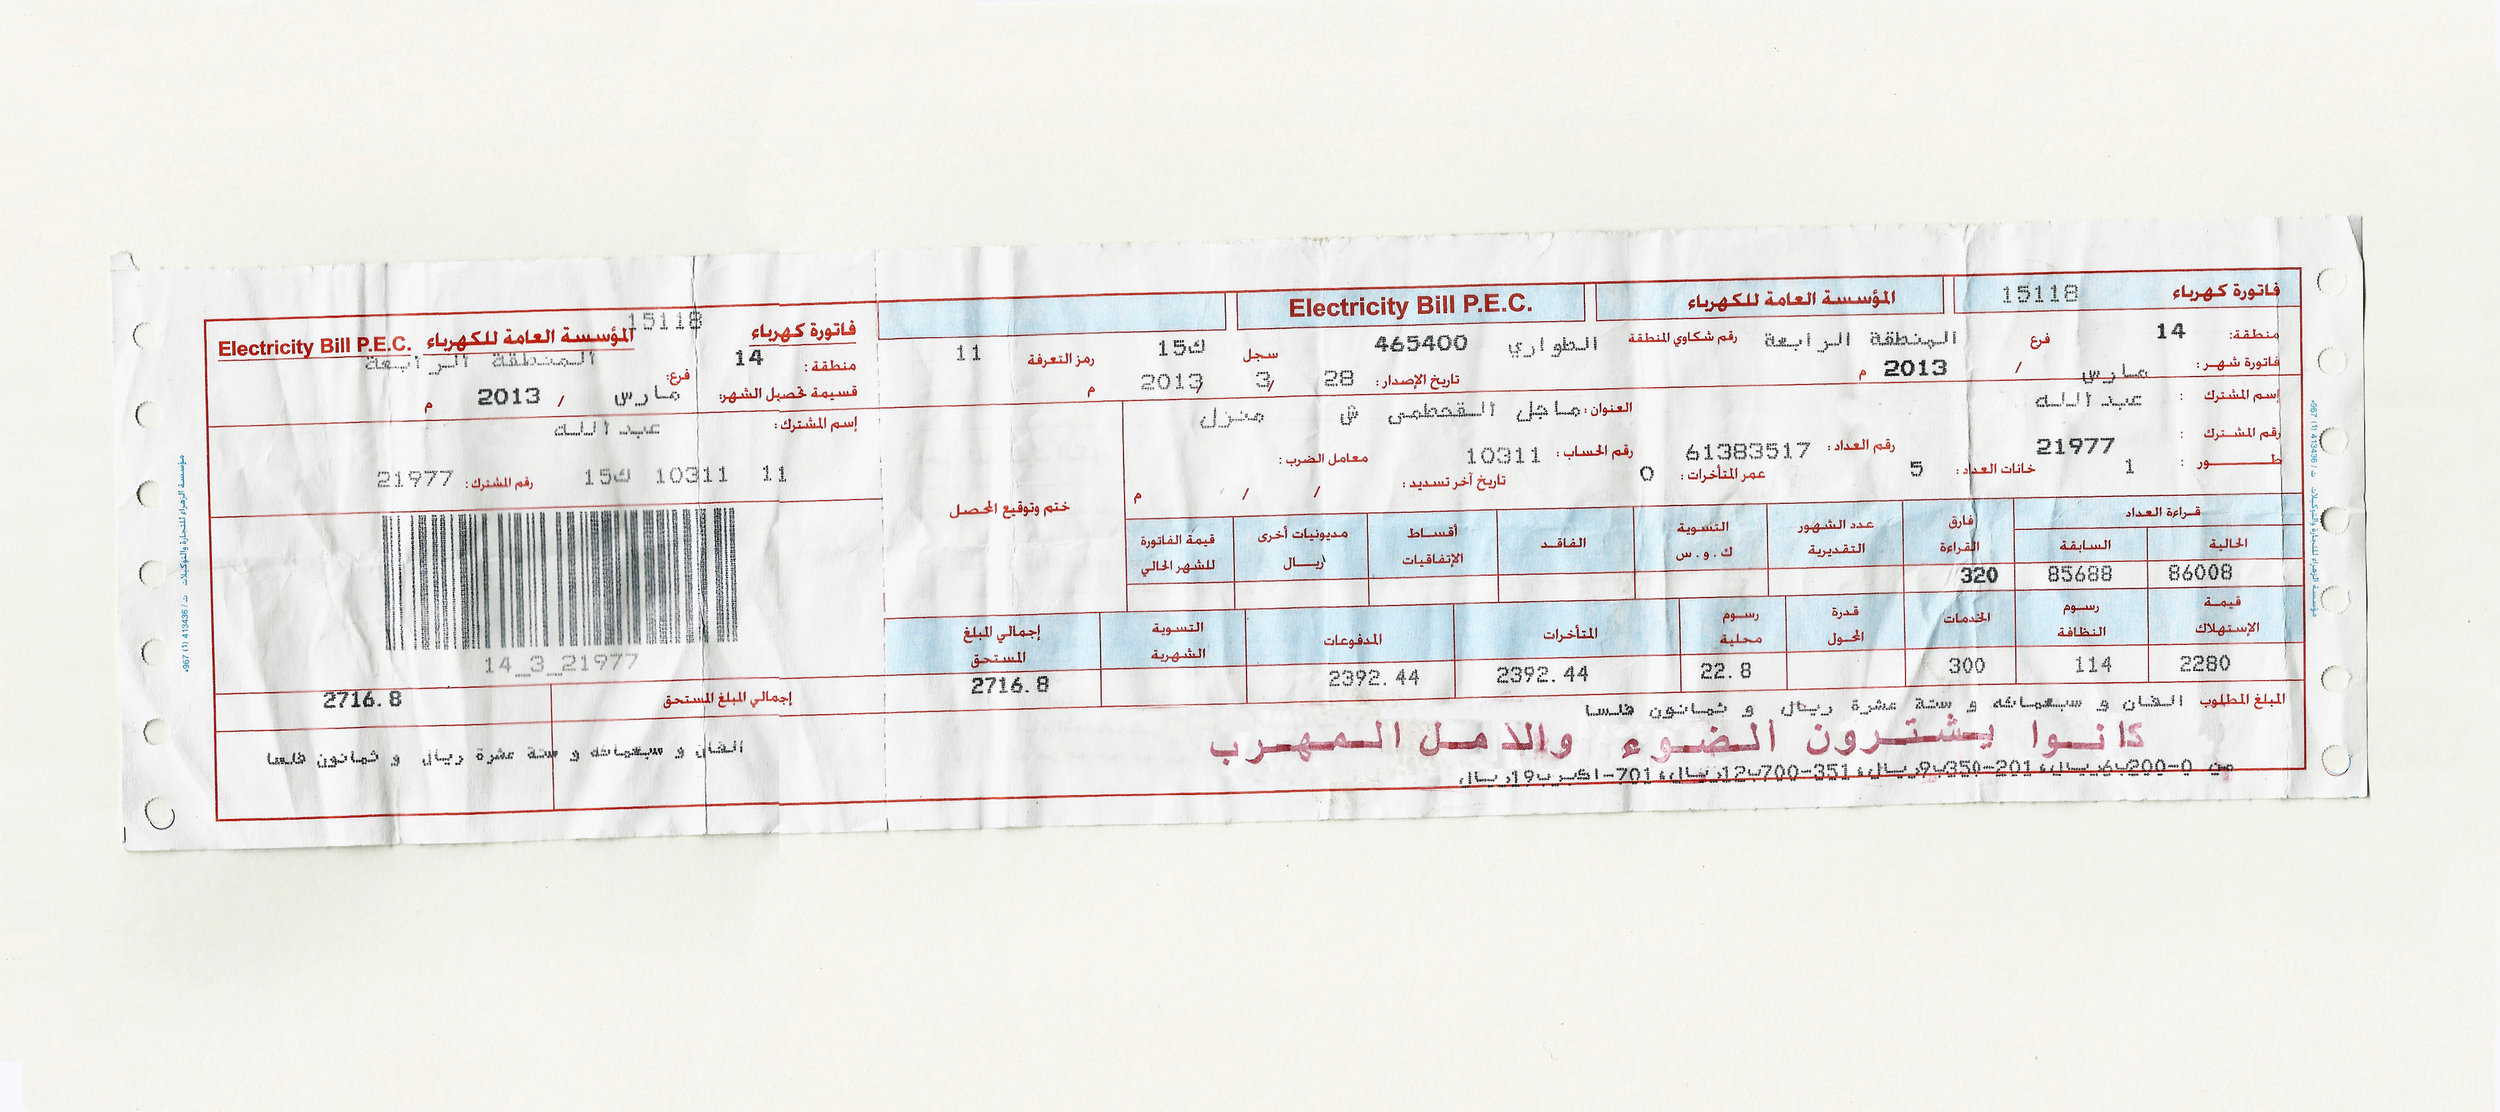 فاتورة كهرباء 15118 المؤسسة العامة للكهرباء Electricity Bill P.E.C.
منطقة: 14 فرع المنطقة الرابعة رقم شكاوي المنطقة الطواري 465400 سجل ك15 رمز التعرفة 11
فاتورة شهر: مارس / 2013 م تاريخ الإصدار: 28 / 3 / 2013 م
إسم المشترك : عبدالله العنوان: ماجل القحطمى ش منزل
رقم المشترك : 21977 رقم العداد: 61383517 رقم الحساب: 10311 معامل الضرب:
طور : 1 خانات العداد: 5 عمر المتأخرات: 0 تاريخ آخر تسديد: / / م
ختم وتوقيع المحصل
قراءة العداد فارق القراءة عدد الشهور التقديرية التسوية ك.و.س الفاقد أقساط الإتفاقيات مديونيات أخرى /ريال قيمة الفاتورة للشهر الحالي
الحالية السابقة
86008 85688 320
قيمة الإستهلاك رسوم النظافة الخدمات قدرة المحول رسوم محلية المتأخرات المدفوعات التسوية الشهرية إجمالي المبلغ المستحق
2280 114 300 22.8 2392.44 2392.44 2716.8
المبلغ المطلوب الفان و سبعمائه و ستة عشرة ريال و ثمانون فلسا
كانوا يشترون الضوء والامل المهرب
من 0-200ب6ريال،201-350ب9ريال،351-700ب12ريال،701-اكبرب19ريال
فاتورة كهرباء 15118 المؤسسة العامة للكهرباء Electricity Bill P.E.C.
منطقة: 14 فرع: المنطقة الرابعة
قسيمة تحصيل الشهر: مارس / 2013 م
إسم المشترك: عبدالله
11 10311 ك15 رقم المشترك: 21977
14_3_21977
إجمالي المبلغ المستحق 2716.8
الفان و سبعمائه و ستة عشرة ريال و ثمانون فلسا
مؤسسة الزهراء للتجارة والتوكيلات ت / 413436 (1) 967+
مؤسسة الزهراء للتجارة والتوكيلات ت / 413436 (1) 967+